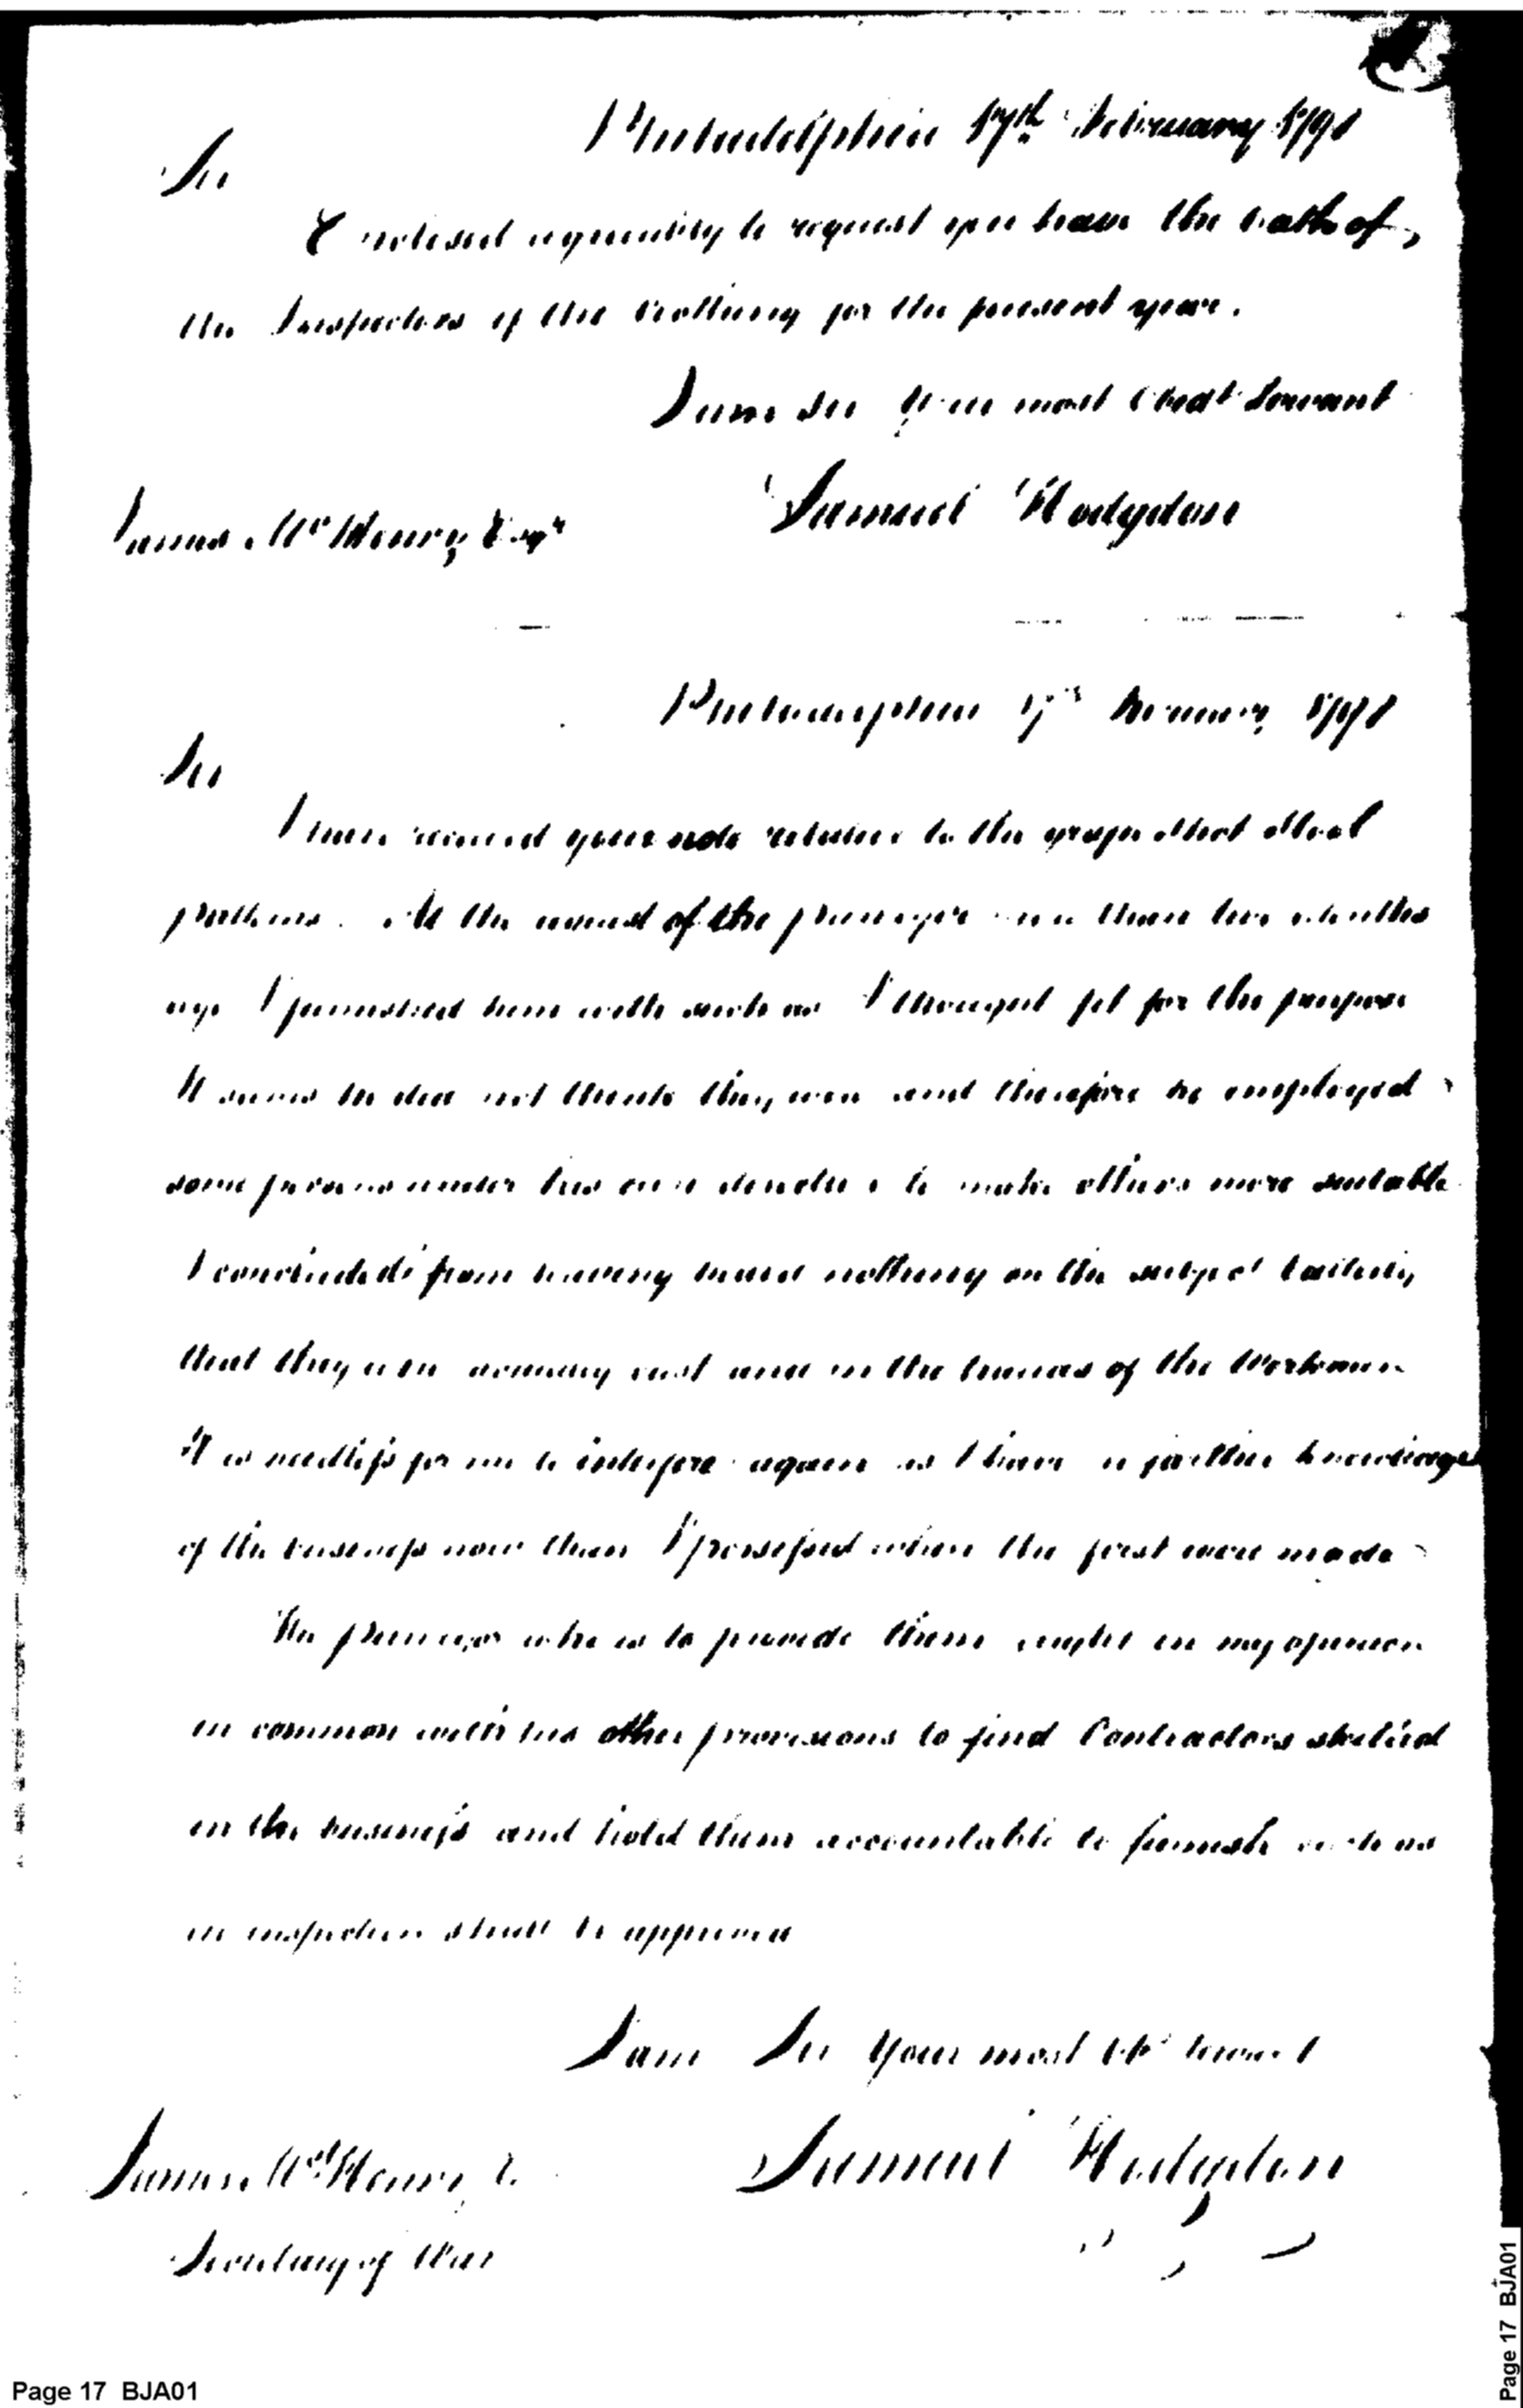 Philadelphia 17th February 1798
Sir
Enclosed agreeably to request you have the oath of
the Inspectors of the Clothing for the present year.
I am Sir Your most Obedt Servant
Samuel Hodgdon
James McHenry Esqr
Philadelphia February 1798
Sir
I have received your note relative to the grape shot
patterns. At the request of the purveyor more than two months
ago I furnished him with such as I thought fit for the purpose
It seems he did not think they were and therefore he employed
some persons under his own direction to make others more suitable
I concluded from having heard nothing on the subject latterly
that they were actually cast and in the hands of the Workmen
It is needless for me to interfere again as I have no further knowledge
of the business now than I possessed when the first were made
The purveyor who is to provide them ought in my opinion
in common with his other provisions to find Contractors skilled
in the business and hold them accountable to furnish such as
on inspection shall be approved
I am Sir Your most Obt Servant
James McHenry E.
Samuel Hodgdon
Secretary of War
Page 17 BJA01
Page 17 BJA01